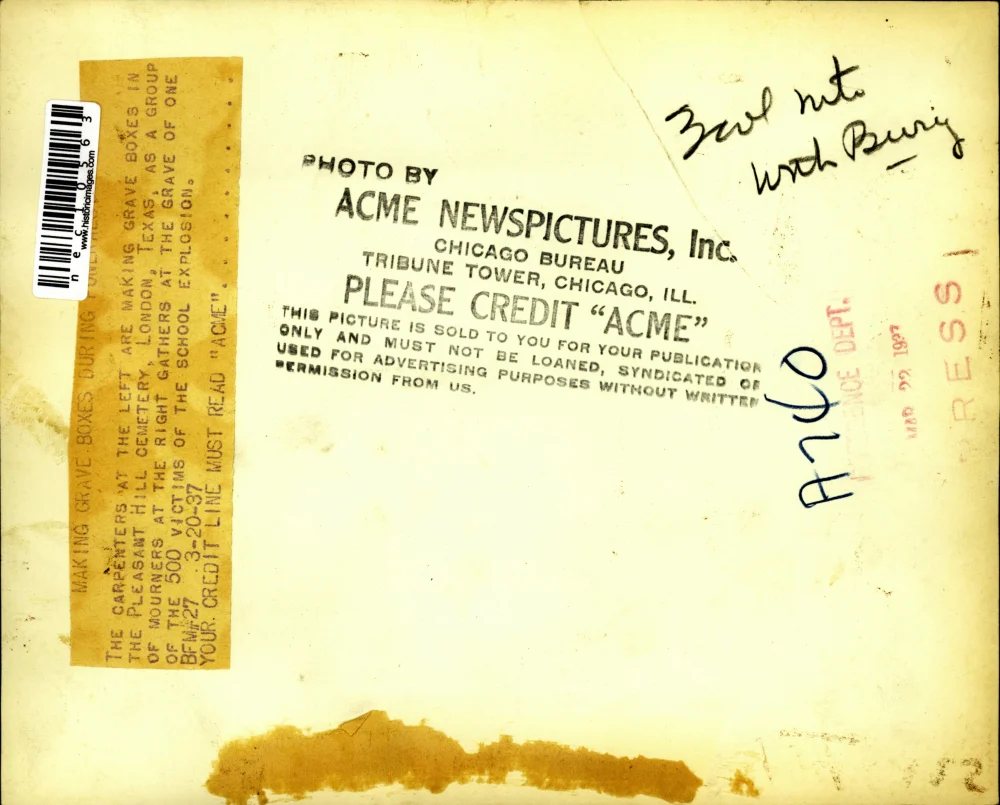 MAKING GRAVE BOXES DURING
THE CARPENTERS AT THE LEFT ARE MAKING GRAVE BOXES IN
THE PLEASANT HILL CEMETERY, LONDON, TEXAS, AS A GROUP
OF MOURNERS AT THE RIGHT GATHERS AT THE GRAVE OF ONE
OF THE 500 VICTIMS OF THE SCHOOL EXPLOSION.
BFM#27 3-20-37
YOUR CREDIT LINE MUST READ "ACME"....
www.historicimages.com
PHOTO BY
ACME NEWSPICTURES, Inc.
CHICAGO BUREAU
TRIBUNE TOWER, CHICAGO, ILL.
PLEASE CREDIT "ACME"
THIS PICTURE IS SOLD TO YOU FOR YOUR PUBLICATION
ONLY AND MUST NOT BE LOANED, SYNDICATED OR
USED FOR ADVERTISING PURPOSES WITHOUT WRITTEN
PERMISSION FROM US.
with
A740
DEPT.
MAR 22 1937
RESS